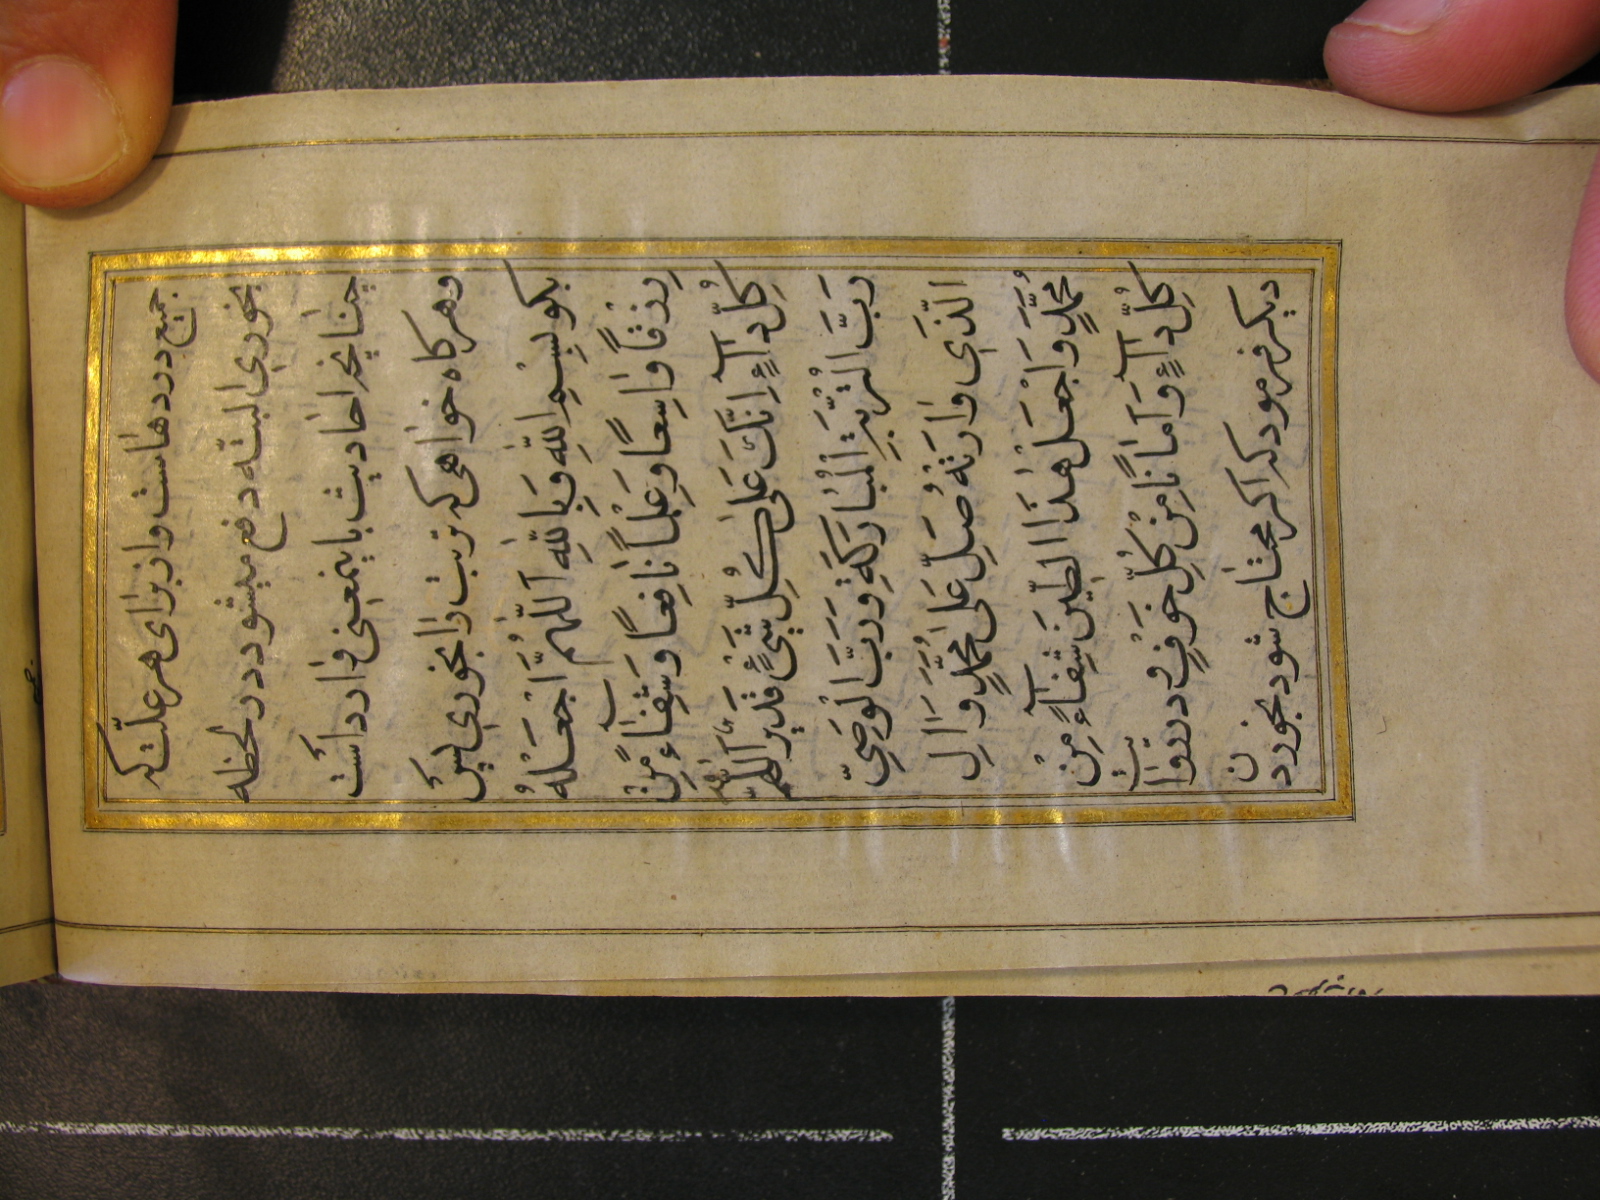 جمیع دردهاست واز برای هر علّت که
بخوری البتّه دفع میشود در لحظه
چنانچه احادیث باینمعنی وارداست
وهرکاه خواهی که تربت را بخوری پس
بکو بِسْمِ اللّٰهِ وَبِاللّٰهِ اَللّٰهُمَّ اجْعَلْهُ
رِزْقًا وٰاسِعًا وَعِلْمًا نٰافِعًا وَشِفٰآءً مِنْ
کُلِّ دٰآءٍ اِنَّكَ عَلٰی کُلِّ شَیْءٍ قَدیرٌ اَللّٰهُمَّ
رَبَّ التُّرْبَةِ الْمُبٰارَکَةِ وَرَبَّ الْوَصِیِّ
الَّذی وٰارَتْهُ صَلِّ عَلٰی مُحَمَّدٍ وَاٰلِ
مُحَمَّدٍ وَاجْعَلْ هٰذَا الطّینَ شِفٰآءً مِنْ
کُلِّ دٰآءٍ وَاَمٰانًا مِنْ کُلِّ خَوْفٍ ودر روایت
دیکر فرمود که اکر محتاج شود بخوردن